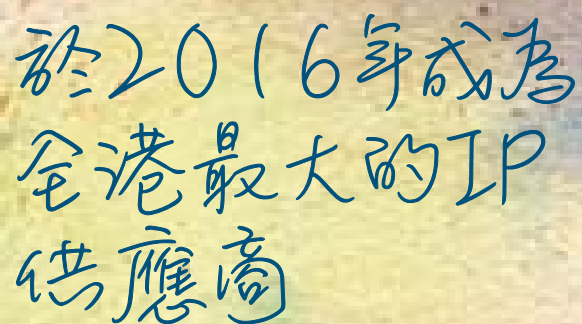 於2016年成為
全港最大的IP
供應商